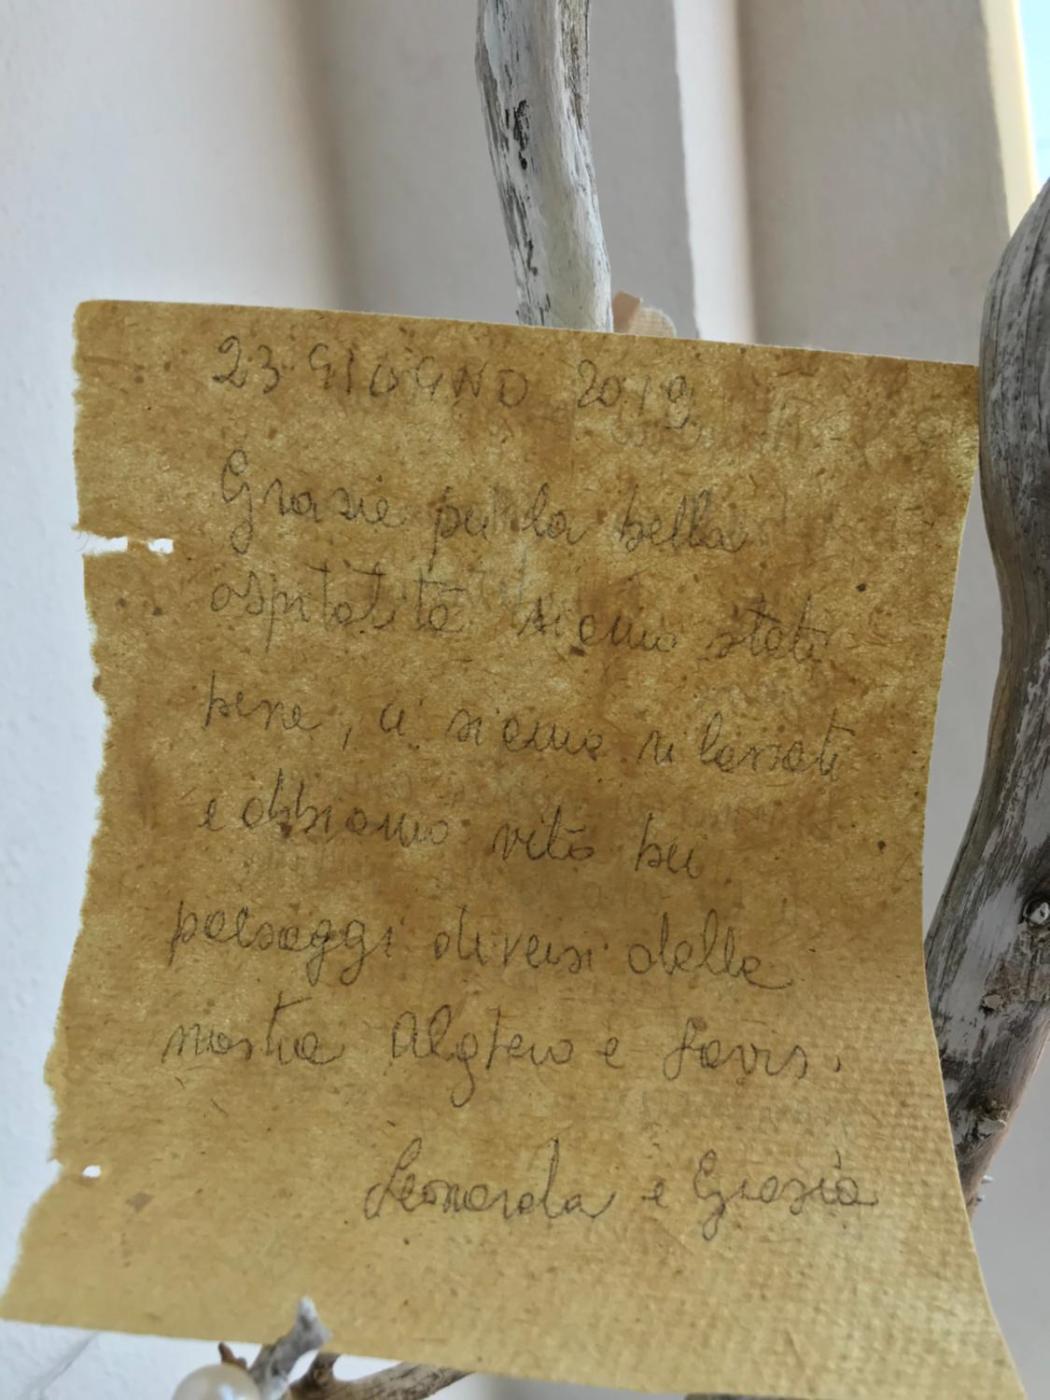 23 GIUGNO 2019
Grazie per la bella
ospitalità siamo stati
bene, ci siamo rilassati
e abbiamo visto bei
paesaggi diversi dalla
nostra Alghero e
Leonarda e Grazia